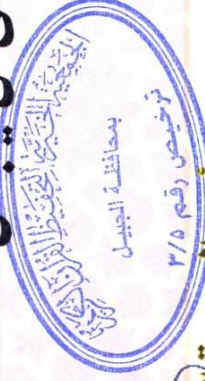 الجمعية الخيرية لتحفيظ القرآن الكريم
بمحافظة الجبيل
ترخيص رقم ٣/٥